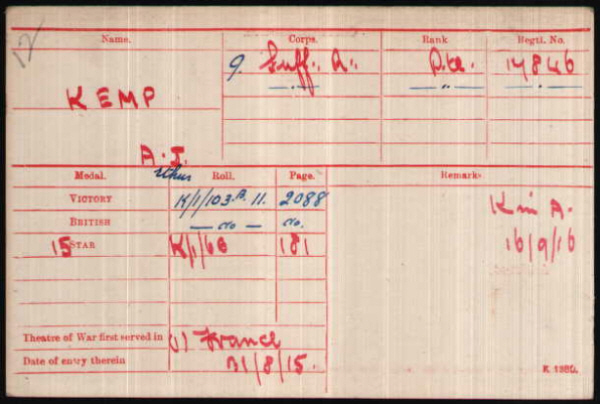 12
Name. Corps. Rank Regtl. No.
9. Suff. R. Pte. 14846
KEMP — " — — " — — " —
A. J.
rthur
Medal. Roll. Page. Remarks
VICTORY K/1/103.B.11. 2088 K in A.
BRITISH — do — do. 16/9/16
15 STAR K/1/6B 181
Theatre of War first served in (1) France
Date of entry therein 31/8/15.
K 1380.